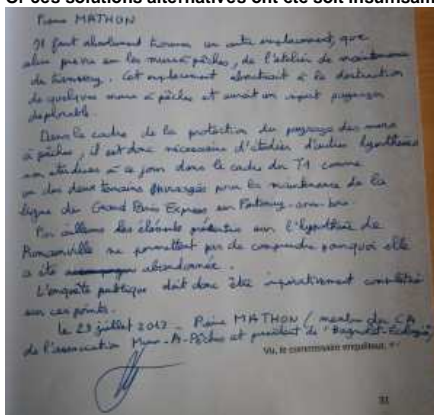 Or ces solutions alternatives ont été soit insuffisam
Pierre MATHON
Il faut absolument trouver un autre emplacement, que
celui prévu sur les murs à pêches, de l'atelier de maintenance
du tramway. Cet emplacement aboutirait à la destruction
de quelques murs à pêches et aurait un impact paysager
déplorable.
Dans le cadre de la protection du paysage des murs
à pêches, il est donc nécessaire d'étudier d'autres hypothèses
non étudiées à ce jour dans le cadre du T1 comme
un des deux terrains envisagés pour la maintenance de la
ligne du Grand Paris Express sur Fontenay-sous-bois.
Par ailleurs les éléments présentés sur l'hypothèse de
Romainville ne permettent pas de comprendre pourquoi elle
a été abandonnée.
L'enquête publique doit donc être impérativement complétée
sur ces points.
Le 29 juillet 2013 - Pierre MATHON / membre du CA
de l'association Murs-A-Pêches et président de "Bagnolet-Ecologie"
Vu, le commissaire enquêteur,
31